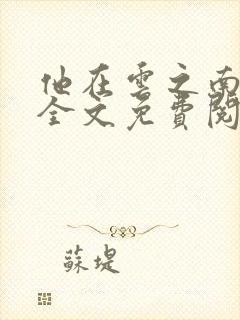 他在雲之南
全文免費閱
蘇堤